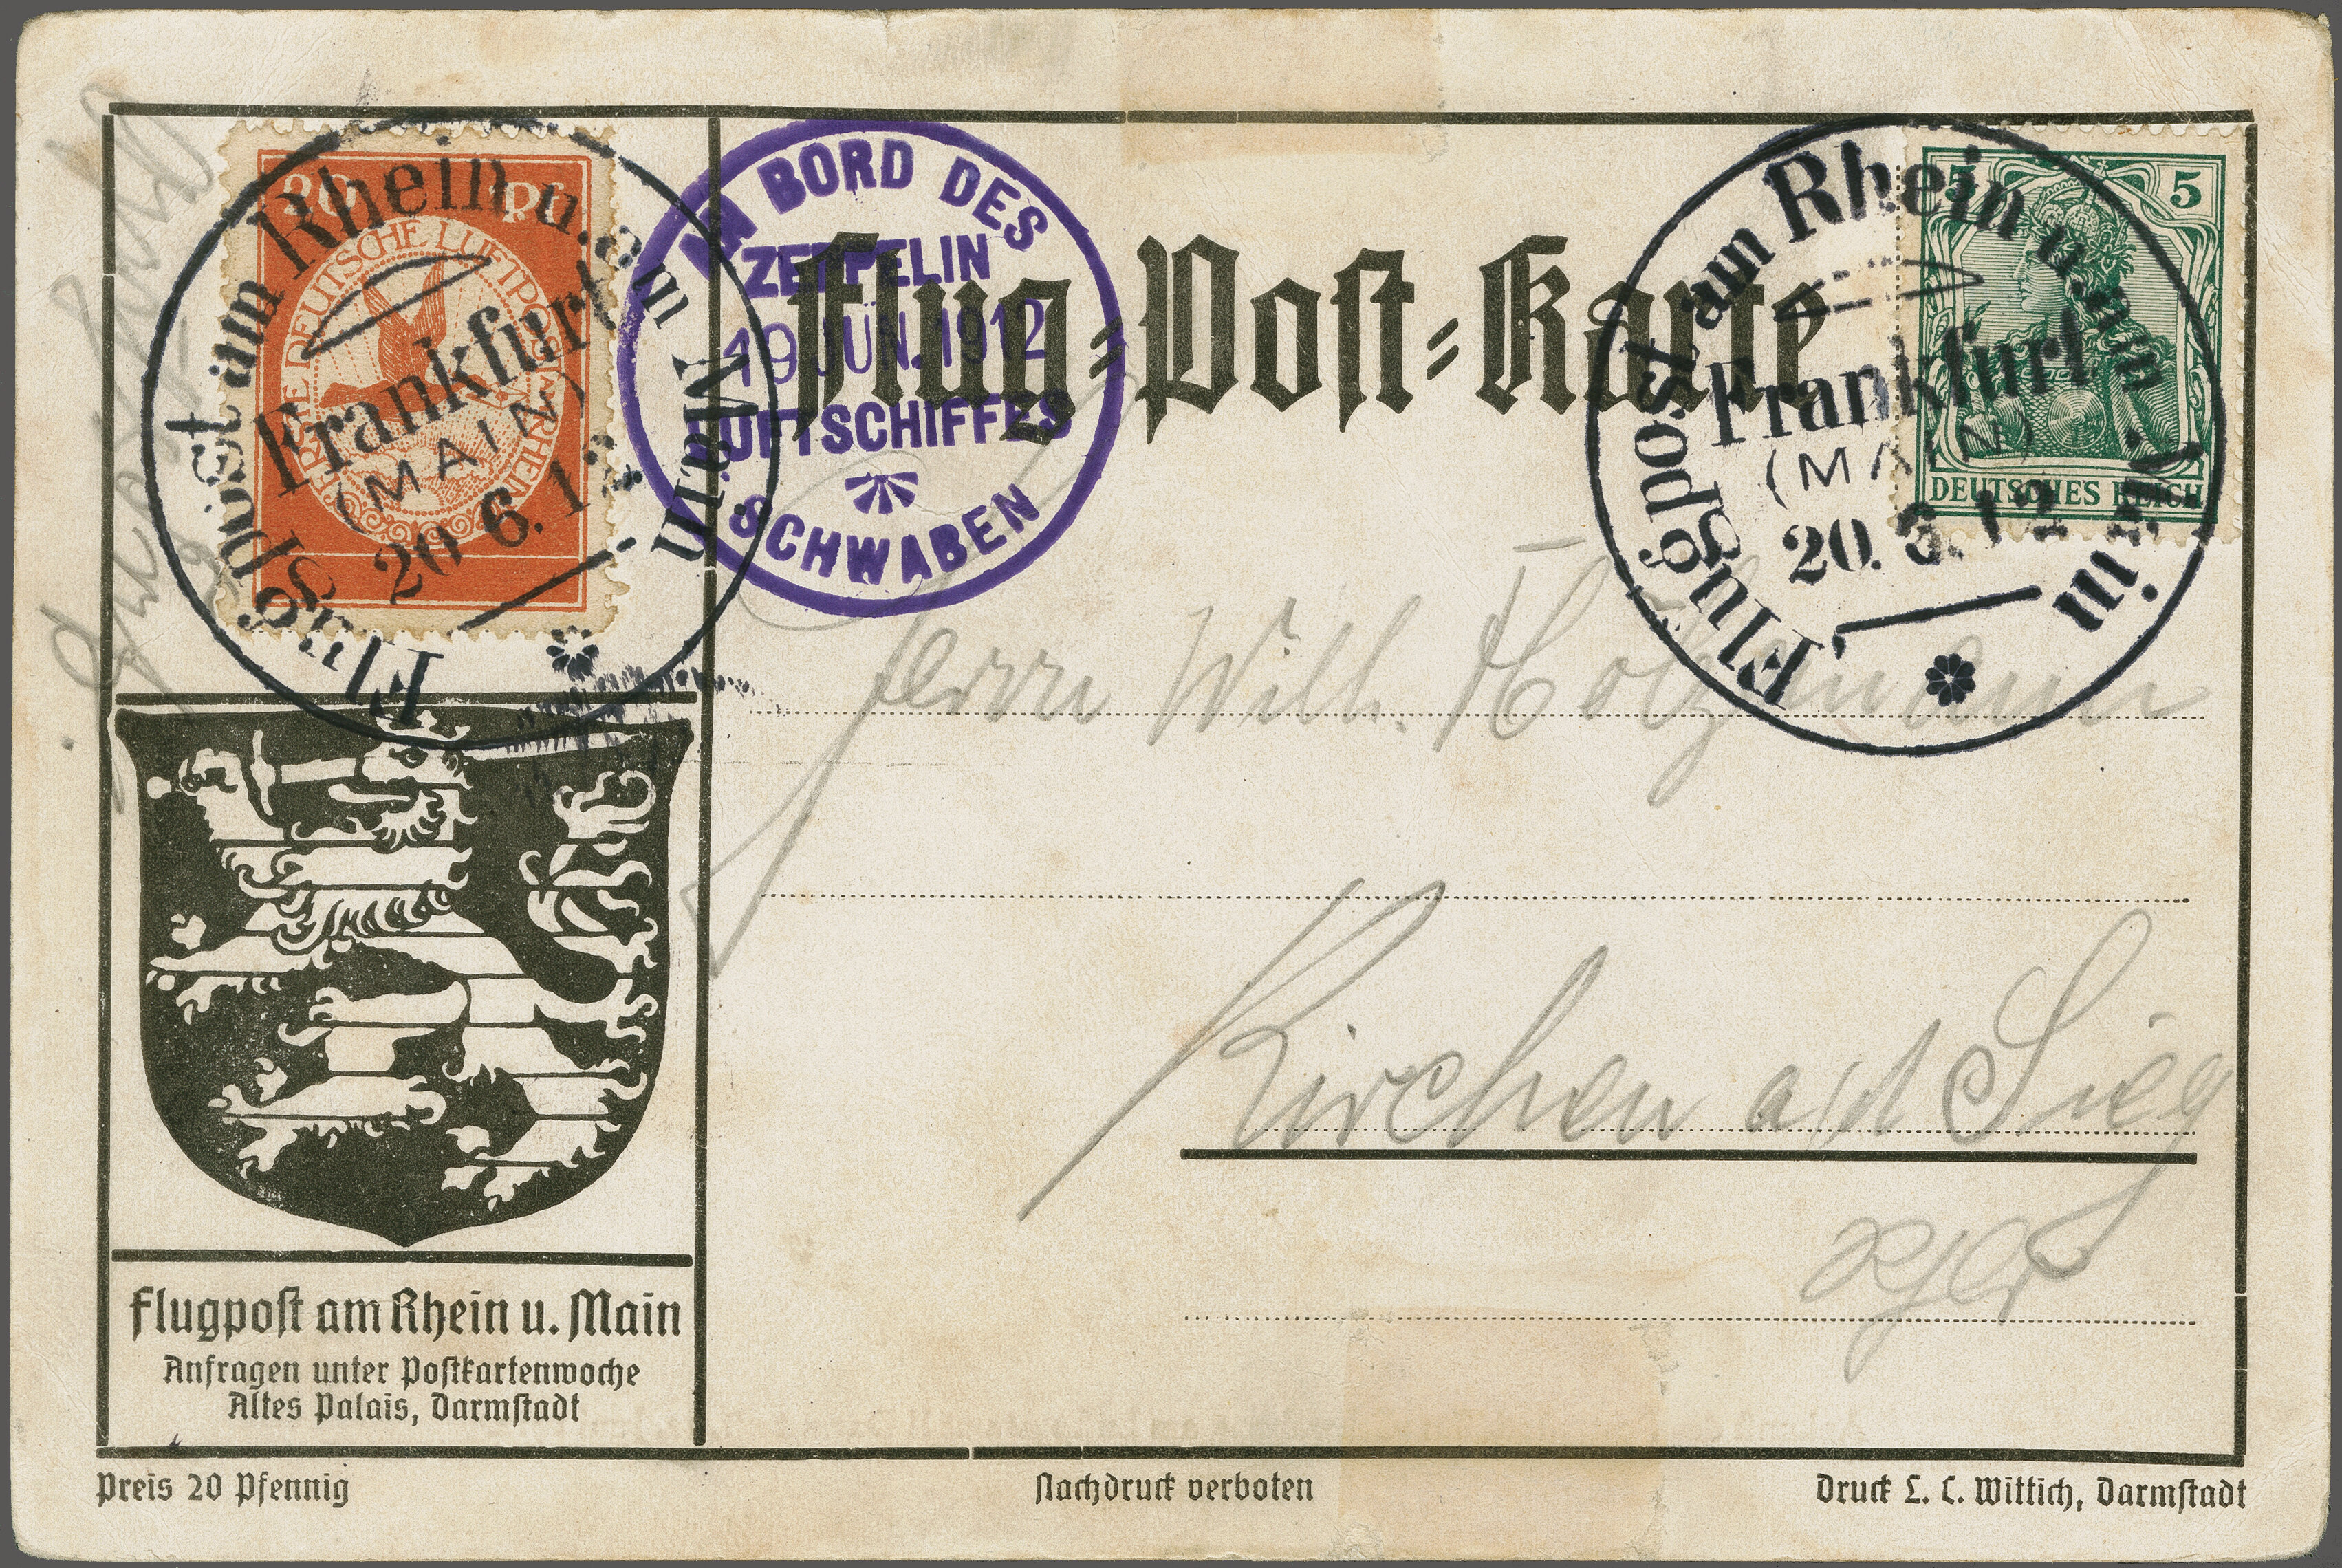 20 Pf
ERSTE DEUTSCHE LUFTPOST AM RHEIN
Flugpost am Rhein u. am Main
Frankfurt
(MAIN)
20 6.12
AN BORD DES
ZEPPELIN
19 JUN. 1912
LUFTSCHIFFES
SCHWABEN
Flug-Post-Karte
5
DEUTSCHES REICH
Flugpost am Rhein u. am Main
Frankfurt
(MAIN)
20. 6. 12
Herrn Willi. Holzmann
Kirchen a/d Sieg
Flugpost am Rhein u. Main
Anfragen unter Postkartenwoche
Altes Palais, Darmstadt
Preis 20 Pfennig
Nachdruck verboten
Druck L. C. Wittich, Darmstadt